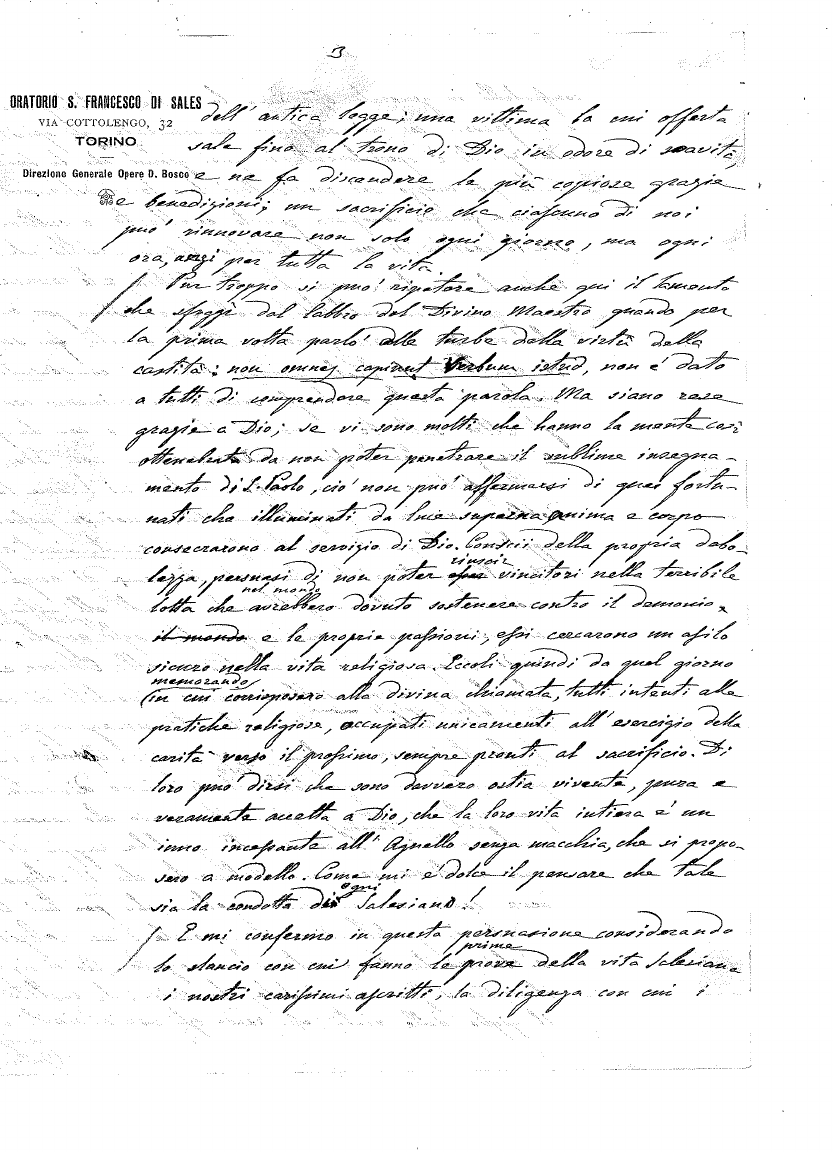 3
ORATORIO S. FRANCESCO DI SALES
VIA COTTOLENGO, 32
TORINO
Direzione Generale Opere D. Bosco
dell'antica legge; una vittima la cui offerta
sale fino al trono di Dio in odore di soavità,
e ne fa discendere le più copiose grazie
e benedizioni; un sacrificio che ciascuno di noi
può rinnovare non solo ogni giorno, ma ogni
ora, anzi per tutta la vita.
Pur troppo si può ripetere anche qui il lamento
che sfuggì dal labbro del Divino Maestro quando per
la prima volta parlò alle turbe della virtù della
castità: non omnes capiunt Verbum istud, non è dato
a tutti di comprendere questa parola. Ma siano rese
grazie a Dio; se vi sono molti che hanno la mente così
ottenebrata da non poter penetrare il sublime insegna-
mento di S. Paolo, ciò non può affermarsi di quei fortu-
nati che illuminati da luce superna anima e corpo
consecrarono al servizio di Dio. Conscii della propria debo-
lezza, persuasi di non poter riuscir vincitori nella terribile
lotta che nel mondo avrebbero dovuto sostenere contro il demonio,
il mondo e le proprie passioni, essi cercarono un asilo
sicuro nella vita religiosa. Eccoli quindi da quel giorno
memorando
(in cui corrisposero alla divina chiamata, tutti intenti alle
pratiche religiose, occupati unicamenti all'esercizio della
carità verso il prossimo, sempre pronti al sacrificio. Di
loro può dirsi che sono davvero ostia vivente, pura e
veramente accetta a Dio, che la loro vita intiera è un
inno incessante all'Agnello senza macchia, che si propo-
sero a modello. Come mi è dolce il pensare che tale
sia la condotta di ogni Salesiano!
E mi confermo in questa persuasione considerando
lo slancio con cui fanno le prime prove della vita Salesiana
i nostri carissimi ascritti, la diligenza con cui i